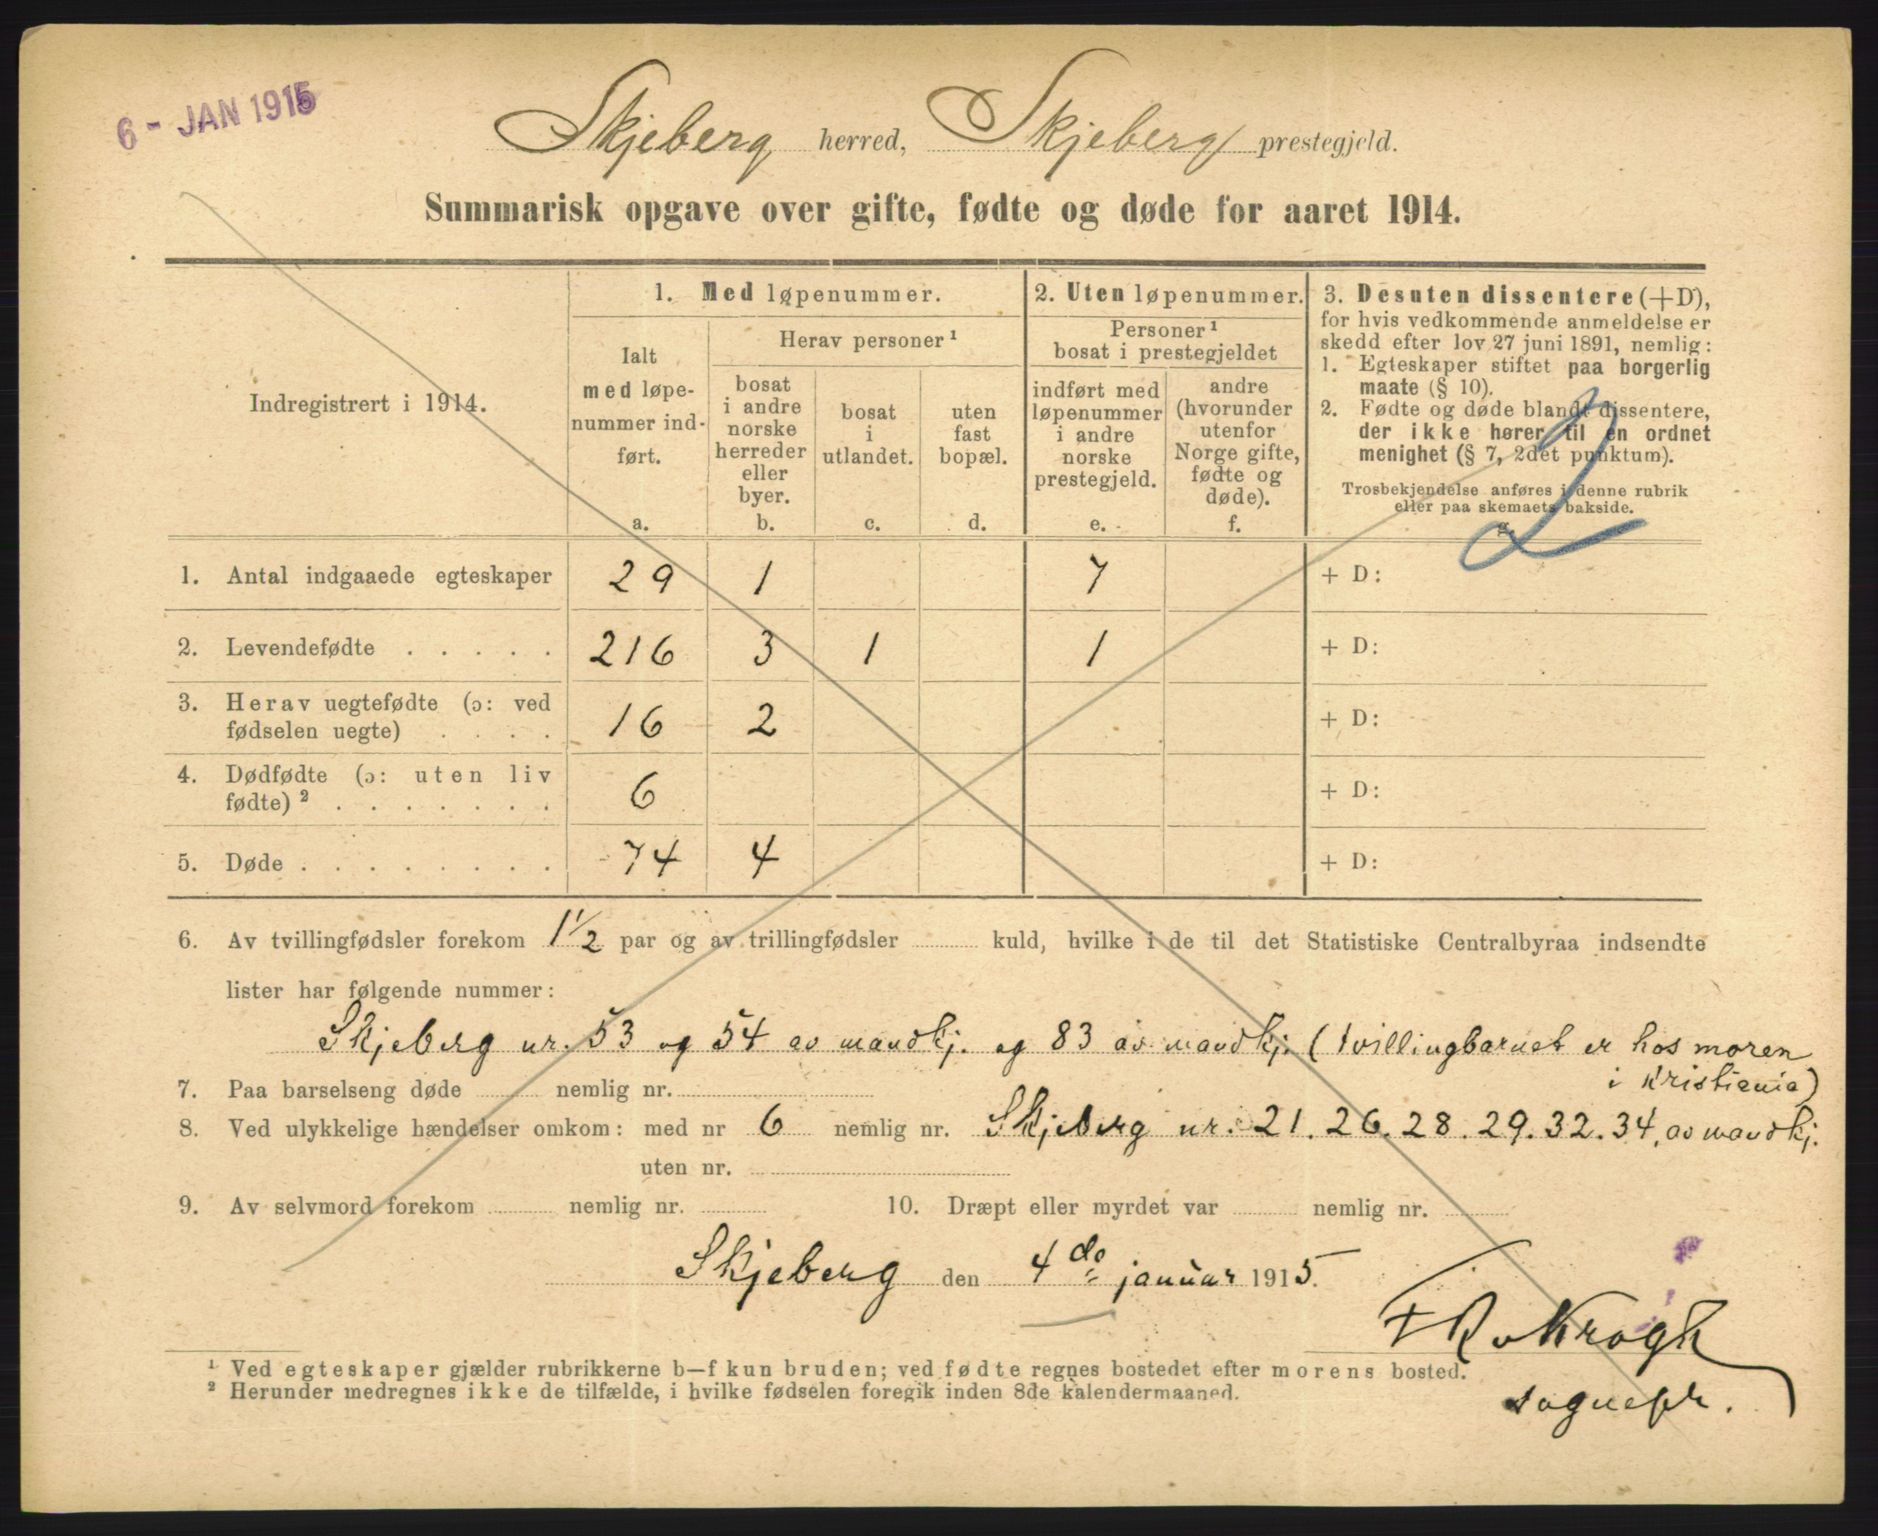 6 - JAN 1915
Skjeberg herred, Skjeberg prestegjeld.
Summarisk opgave over gifte, fødte og døde for aaret 1914.
Indregistrert i 1914.
1. Med løpenummer.
Ialt
med løpe-
nummer ind-
ført.
a.
Herav personer ¹
bosat
i andre
norske
herreder
eller
byer.
b.
bosat
i
utlandet.
c.
uten
fast
bopæl.
d.
2. Uten løpenummer.
Personer ¹
bosat i prestegjeldet
indført med
løpenummer
i andre
norske
prestegjeld.
e.
andre
(hvorunder
utenfor
Norge gifte,
fødte og
døde).
f.
3. Desuten dissentere (+D),
for hvis vedkommende anmeldelse er
skedd efter lov 27 juni 1891, nemlig:
1. Egteskaper stiftet paa borgerlig
maate (§ 10).
2. Fødte og døde blandt dissentere,
der ikke hører til en ordnet
menighet (§ 7, 2det punktum).
Trosbekjendelse anføres i denne rubrik
eller paa skemaets bakside.
g.
2
1. Antal indgaaede egteskaper 29 1 7 + D:
2. Levendefødte . . . . . 216 3 1 1 + D:
3. Herav uegtefødte (ɔ: ved
fødselen uegte) . . . . 16 2 + D:
4. Dødfødte (ɔ: uten liv
fødte) ² . . . . . . . 6 + D:
5. Døde . . . . . . . . 74 4 + D:
6. Av tvillingfødsler forekom 1 1/2 par og av trillingfødsler kuld, hvilke i de til det Statistiske Centralbyraa indsendte
lister har følgende nummer:
Skjeberg nr. 53 og 54 av mandkj. og 83 av mandkj. (tvillingbarnet er hos moren
i Kristiania)
7. Paa barselseng døde nemlig nr.
8. Ved ulykkelige hændelser omkom: med nr 6 nemlig nr. Skjeberg nr. 21. 26. 28. 29. 32. 34, av mandkj.
uten nr.
9. Av selvmord forekom nemlig nr. 10. Dræpt eller myrdet var nemlig nr.
Skjeberg den 4de januar 1915.
Krogh
sognepr.
¹ Ved egteskaper gjælder rubrikkerne b—f kun bruden; ved fødte regnes bostedet efter morens bosted.
² Herunder medregnes ikke de tilfælde, i hvilke fødselen foregik inden 8de kalendermaaned.